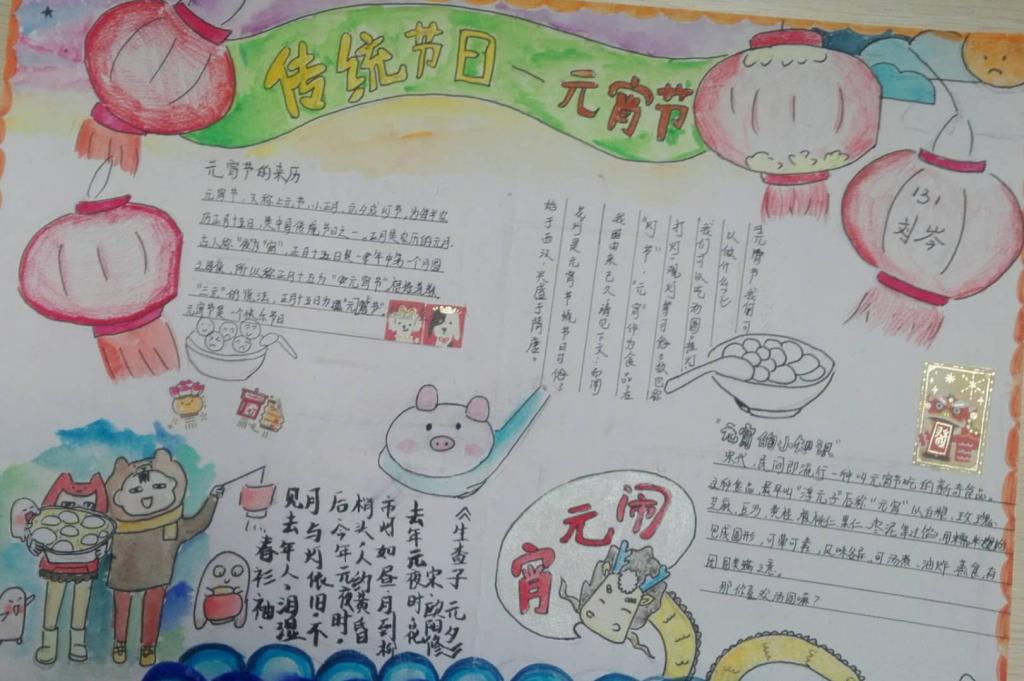 传统节日—元宵节
131
刘岑
元宵节的来历
元宵节,又称上元节、小正月、元夕或灯节,为每年农
历正月十五日,是中国传统节日之一。正月是农历的元月,
古人称"夜"为"宵",正月十五日是一年中第一个月圆
之夜,所以称正月十五为"元宵节"。根据道教
"三元"的说法,正月十五日为"元宵节"
元宵节是一个快乐节日
元宵节,我们可
以做什么了
我们可以吃汤圆
打灯、观灯等
"灯节"。"元宵"作为食品,在
我国由来已久
花灯是元宵节传统节日
始于西汉,兴盛于隋唐。
"元宵的小知识"
宋代,民间即流行一种叫元宵节吃的新奇食品。
这种食品,最早叫"浮元子"后称"元宵"以白糖、玫瑰、
芝麻、豆沙、黄桂、核桃仁、果仁、枣泥等
包成圆形,可荤可素,风味各异。可汤煮、油炸、蒸食,有
团圆美满之意。
那你喜欢汤圆嘛?
《生查子 元夕》
宋·欧阳修
去年元夜时,花
市灯如昼。月到柳
梢头,人约黄昏
后。今年元夜时,
月与灯依旧。不
见去年人,泪湿
春衫袖。
闹
元
宵